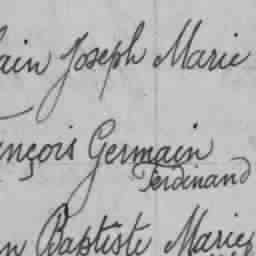 ain Joseph Marie
ançois Germain
Ferdinand
n Baptiste Marie